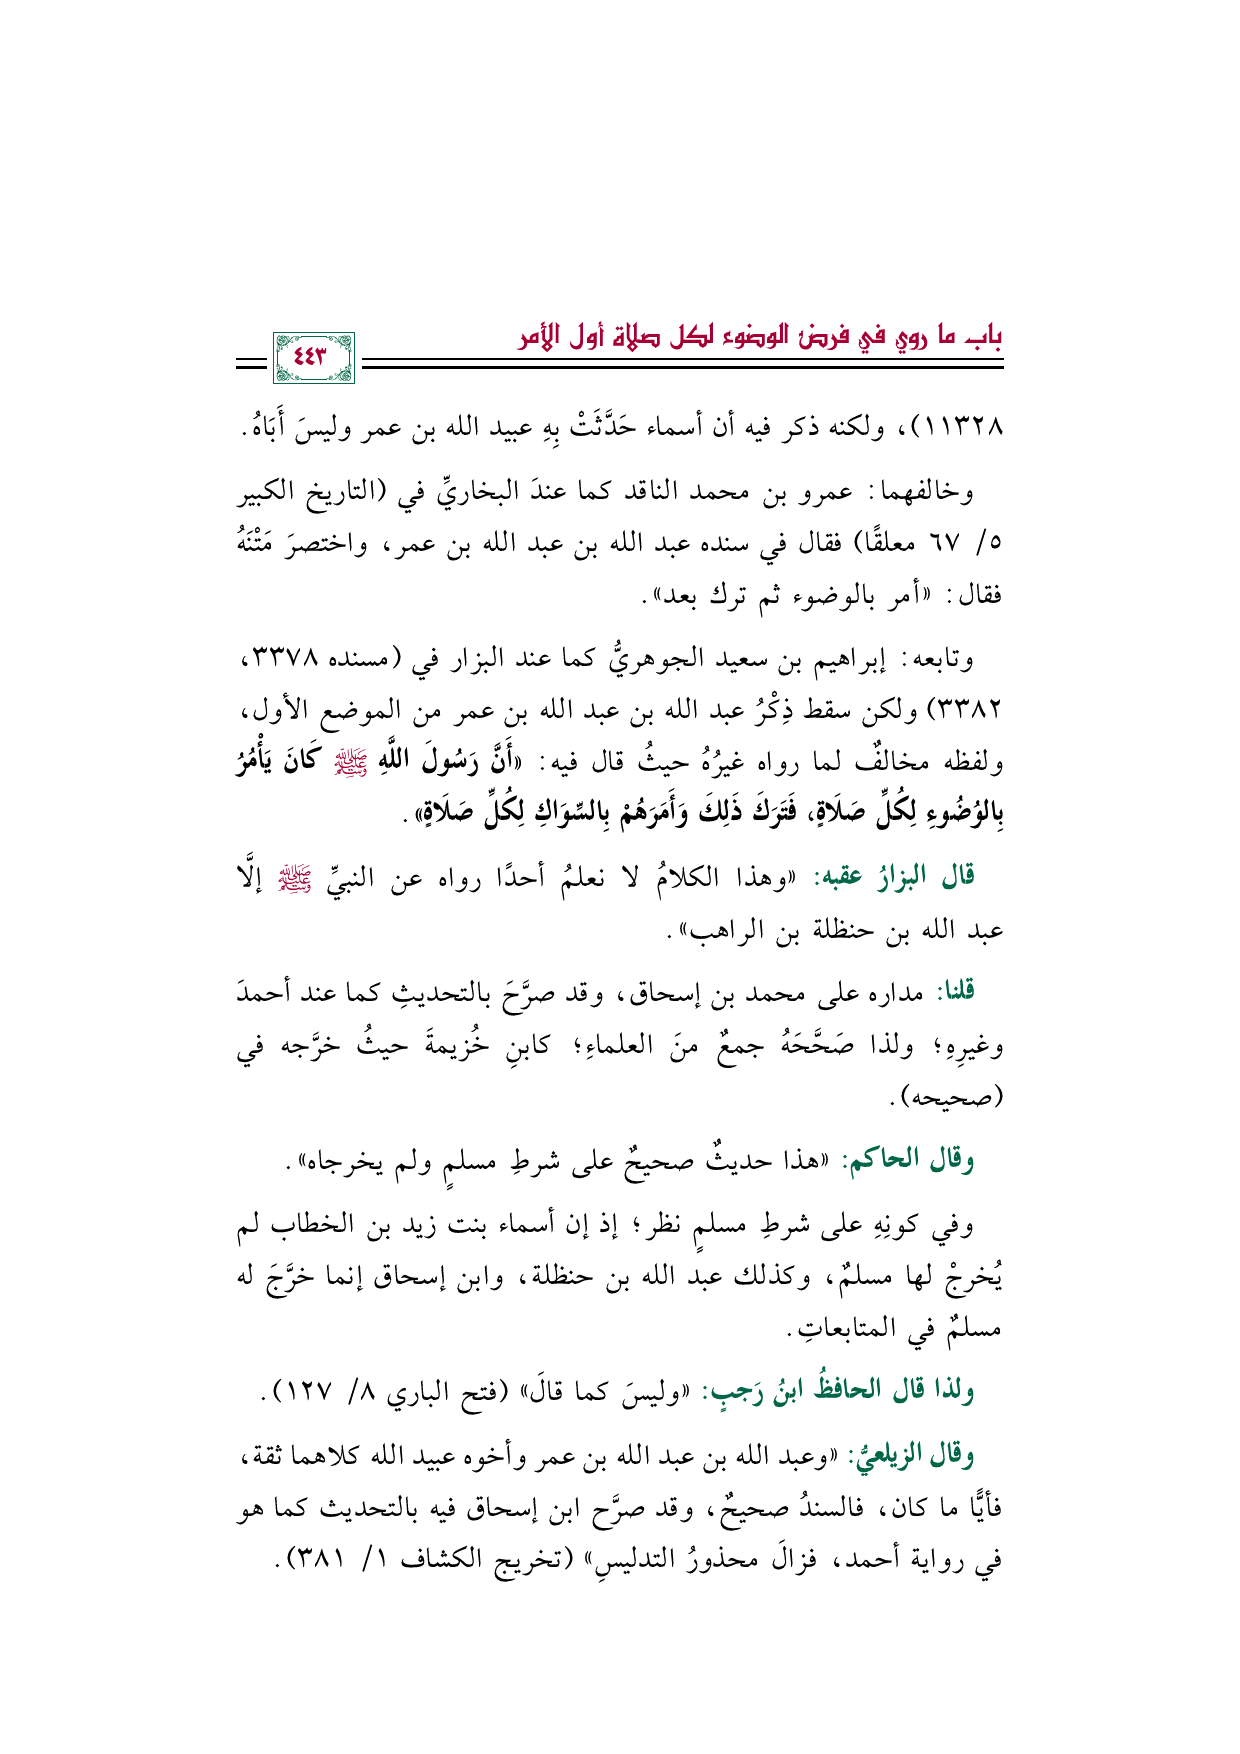 باب ما روي في فرض الوضوء لكل صلاة أول الأمر
٤٤٣
١١٣٢٨)، ولكنه ذكر فيه أن أسماء حَدَّثَتْ بِهِ عبيد الله بن عمر وليسَ أَبَاهُ.
وخالفهما: عمرو بن محمد الناقد كما عندَ البخاريِّ في (التاريخ الكبير
٥/ ٦٧ معلقًا) فقال في سنده عبد الله بن عبد الله بن عمر، واختصرَ مَتْنَهُ
فقال: «أمر بالوضوء ثم ترك بعد».
وتابعه: إبراهيم بن سعيد الجوهريُّ كما عند البزار في (مسنده ٣٣٧٨،
٣٣٨٢) ولكن سقط ذِكْرُ عبد الله بن عبد الله بن عمر من الموضع الأول،
ولفظه مخالفٌ لما رواه غيرُهُ حيثُ قال فيه: «أَنَّ رَسُولَ اللَّهِ ﷺ كَانَ يَأْمُرُ
بِالوُضُوءِ لِكُلِّ صَلَاةٍ، فَتَرَكَ ذَلِكَ وَأَمَرَهُمْ بِالسِّوَاكِ لِكُلِّ صَلَاةٍ».
قال البزارُ عقبه: «وهذا الكلامُ لا نعلمُ أحدًا رواه عن النبيِّ ﷺ إلَّا
عبد الله بن حنظلة بن الراهب».
قلنا: مداره على محمد بن إسحاق، وقد صرَّحَ بالتحديثِ كما عند أحمدَ
وغيرِهِ؛ ولذا صَحَّحَهُ جمعٌ منَ العلماءِ؛ كابنِ خُزيمةَ حيثُ خرَّجه في
(صحيحه).
وقال الحاكم: «هذا حديثٌ صحيحٌ على شرطِ مسلمٍ ولم يخرجاه».
وفي كونِهِ على شرطِ مسلمٍ نظر؛ إذ إن أسماء بنت زيد بن الخطاب لم
يُخرجْ لها مسلمٌ، وكذلك عبد الله بن حنظلة، وابن إسحاق إنما خرَّجَ له
مسلمٌ في المتابعاتِ.
ولذا قال الحافظُ ابنُ رَجبٍ: «وليسَ كما قالَ» (فتح الباري ٨/ ١٢٧).
وقال الزيلعيُّ: «وعبد الله بن عبد الله بن عمر وأخوه عبيد الله كلاهما ثقة،
فأيًّا ما كان، فالسندُ صحيحٌ، وقد صرَّح ابن إسحاق فيه بالتحديث كما هو
في رواية أحمد، فزالَ محذورُ التدليسِ» (تخريج الكشاف ١/ ٣٨١).